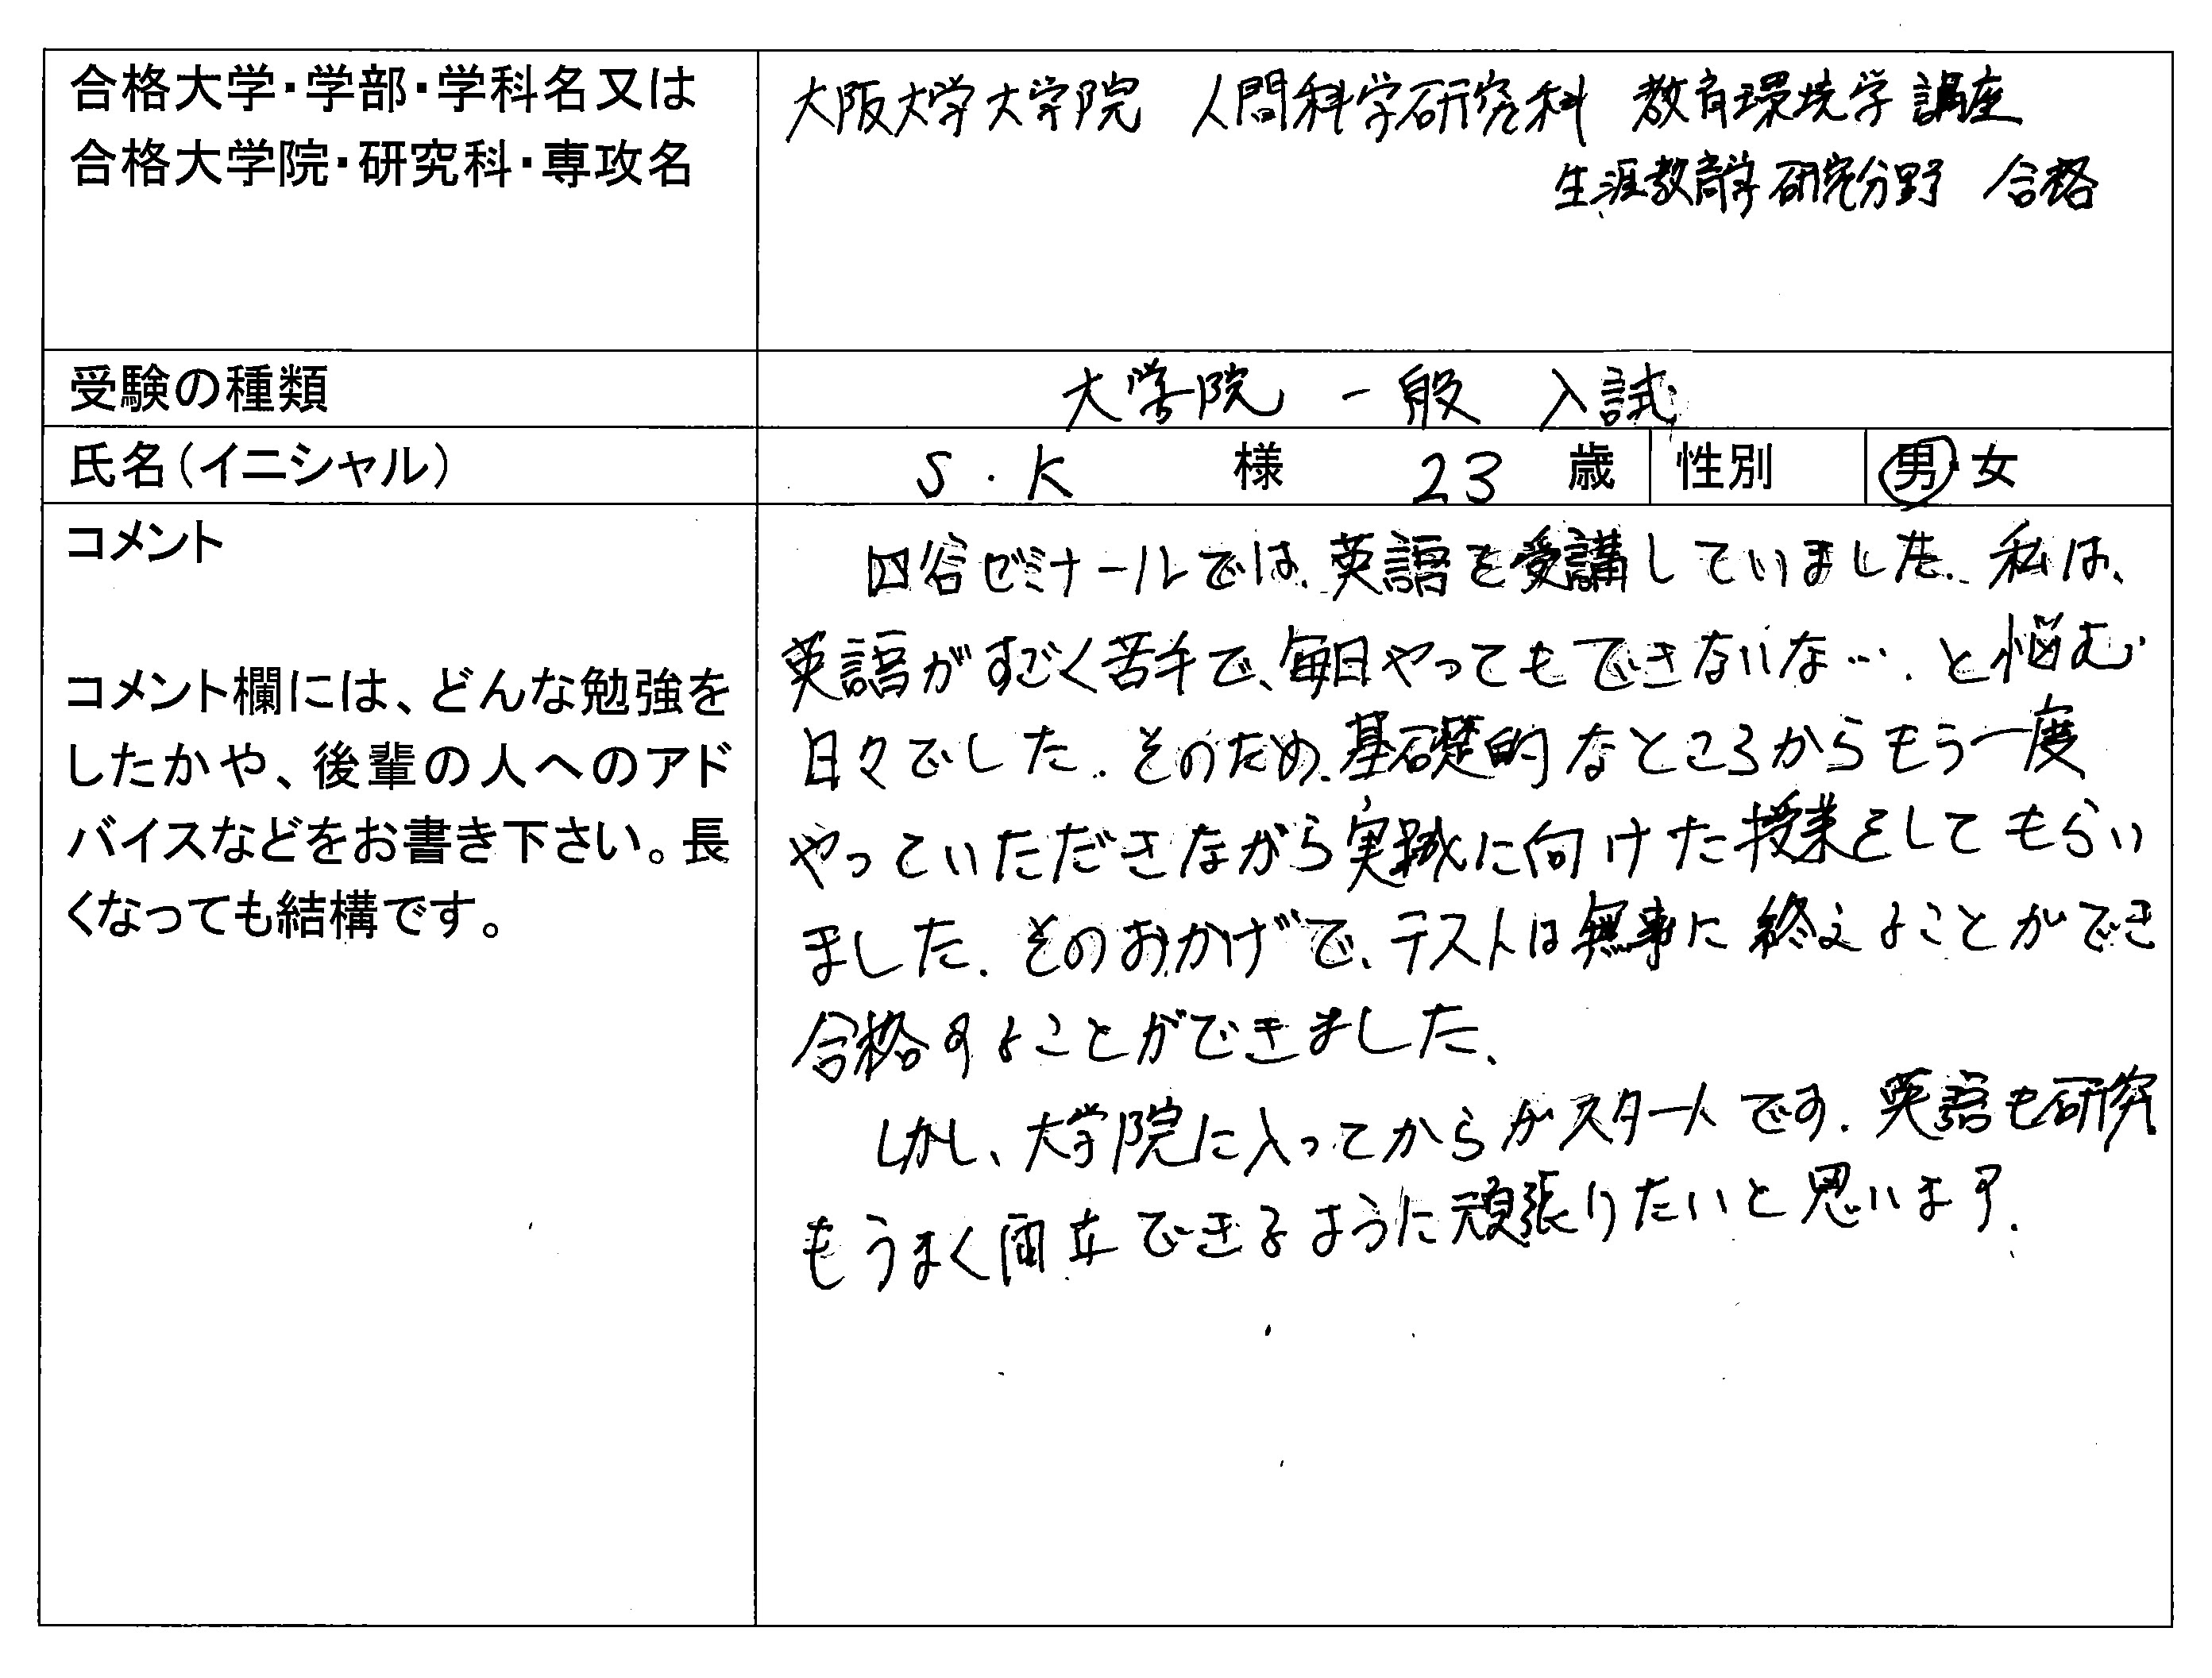 合格大学・学部・学科名又は
合格大学院・研究科・専攻名
大阪大学大学院 人間科学研究科 教育環境学講座
生涯教育学研究分野 合格
受験の種類
大学院 一般 入試
氏名(イニシャル)
S.K 様 23 歳 性別 男・女
コメント
コメント欄には、どんな勉強を
したかや、後輩の人へのアド
バイスなどをお書き下さい。長
くなっても結構です。
四谷ゼミナールでは、英語を受講していました。私は、
英語がすごく苦手で、毎日やってもできないな…。と悩む
日々でした。そのため、基礎的なところからもう一度
やっていただきながら実践に向けた授業をしてもらい
ました。そのおかげで、テストは無事に終えることができ
合格することができました。
しかし、大学院に入ってからがスタートです。英語も研究
もうまく両立できるように頑張りたいと思います。